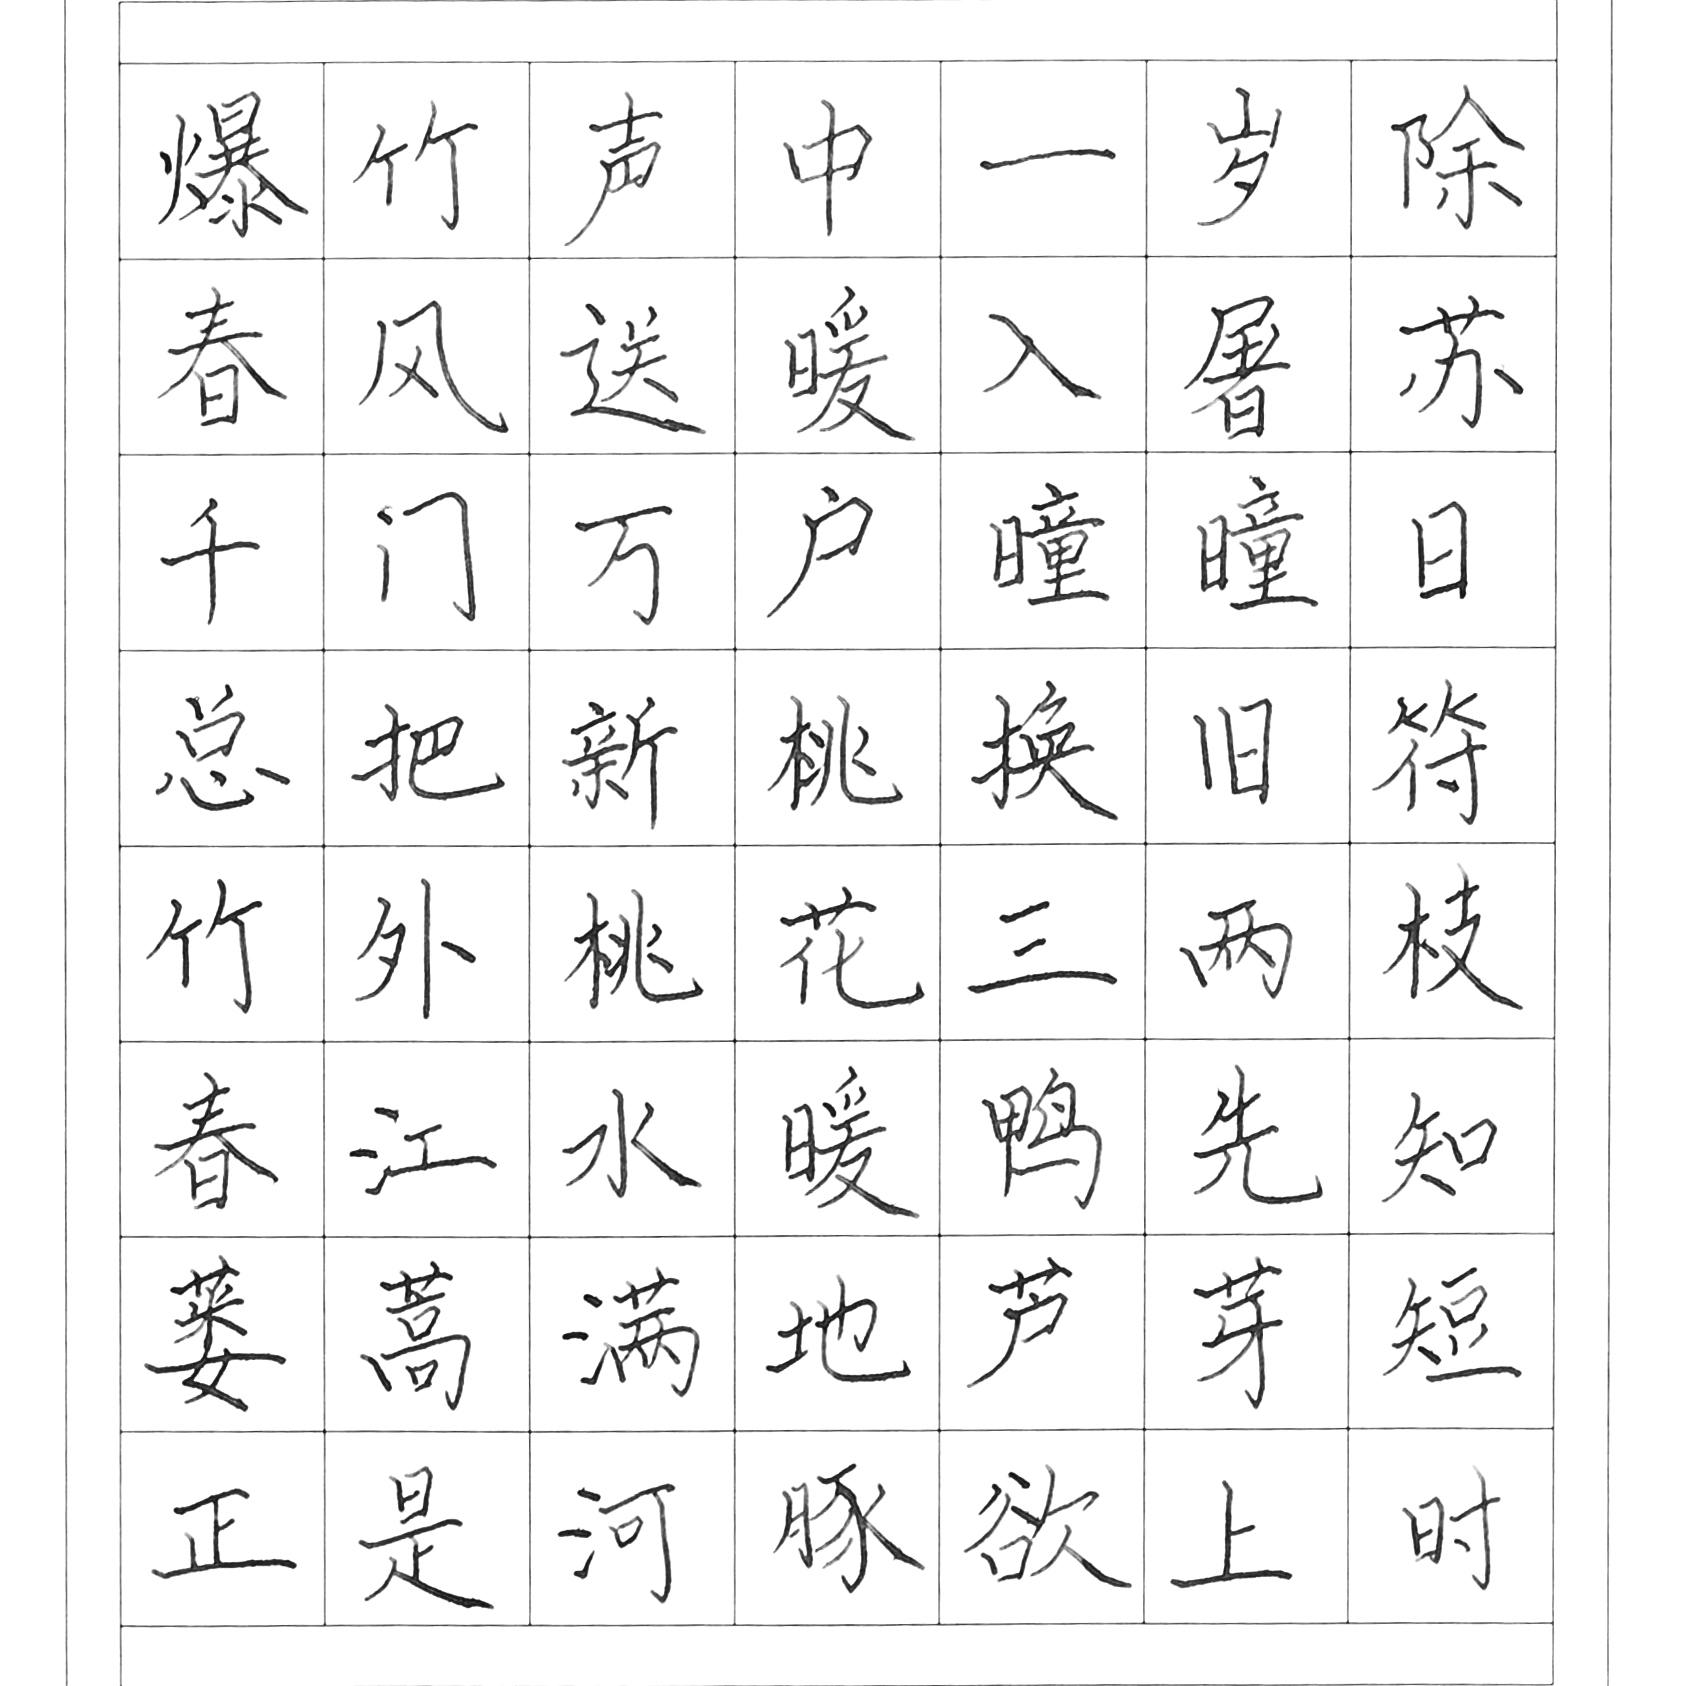 爆竹声中一岁除
春风送暖入屠苏
千门万户曈曈日
总把新桃换旧符
竹外桃花三两枝
春江水暖鸭先知
蒌蒿满地芦芽短
正是河豚欲上时